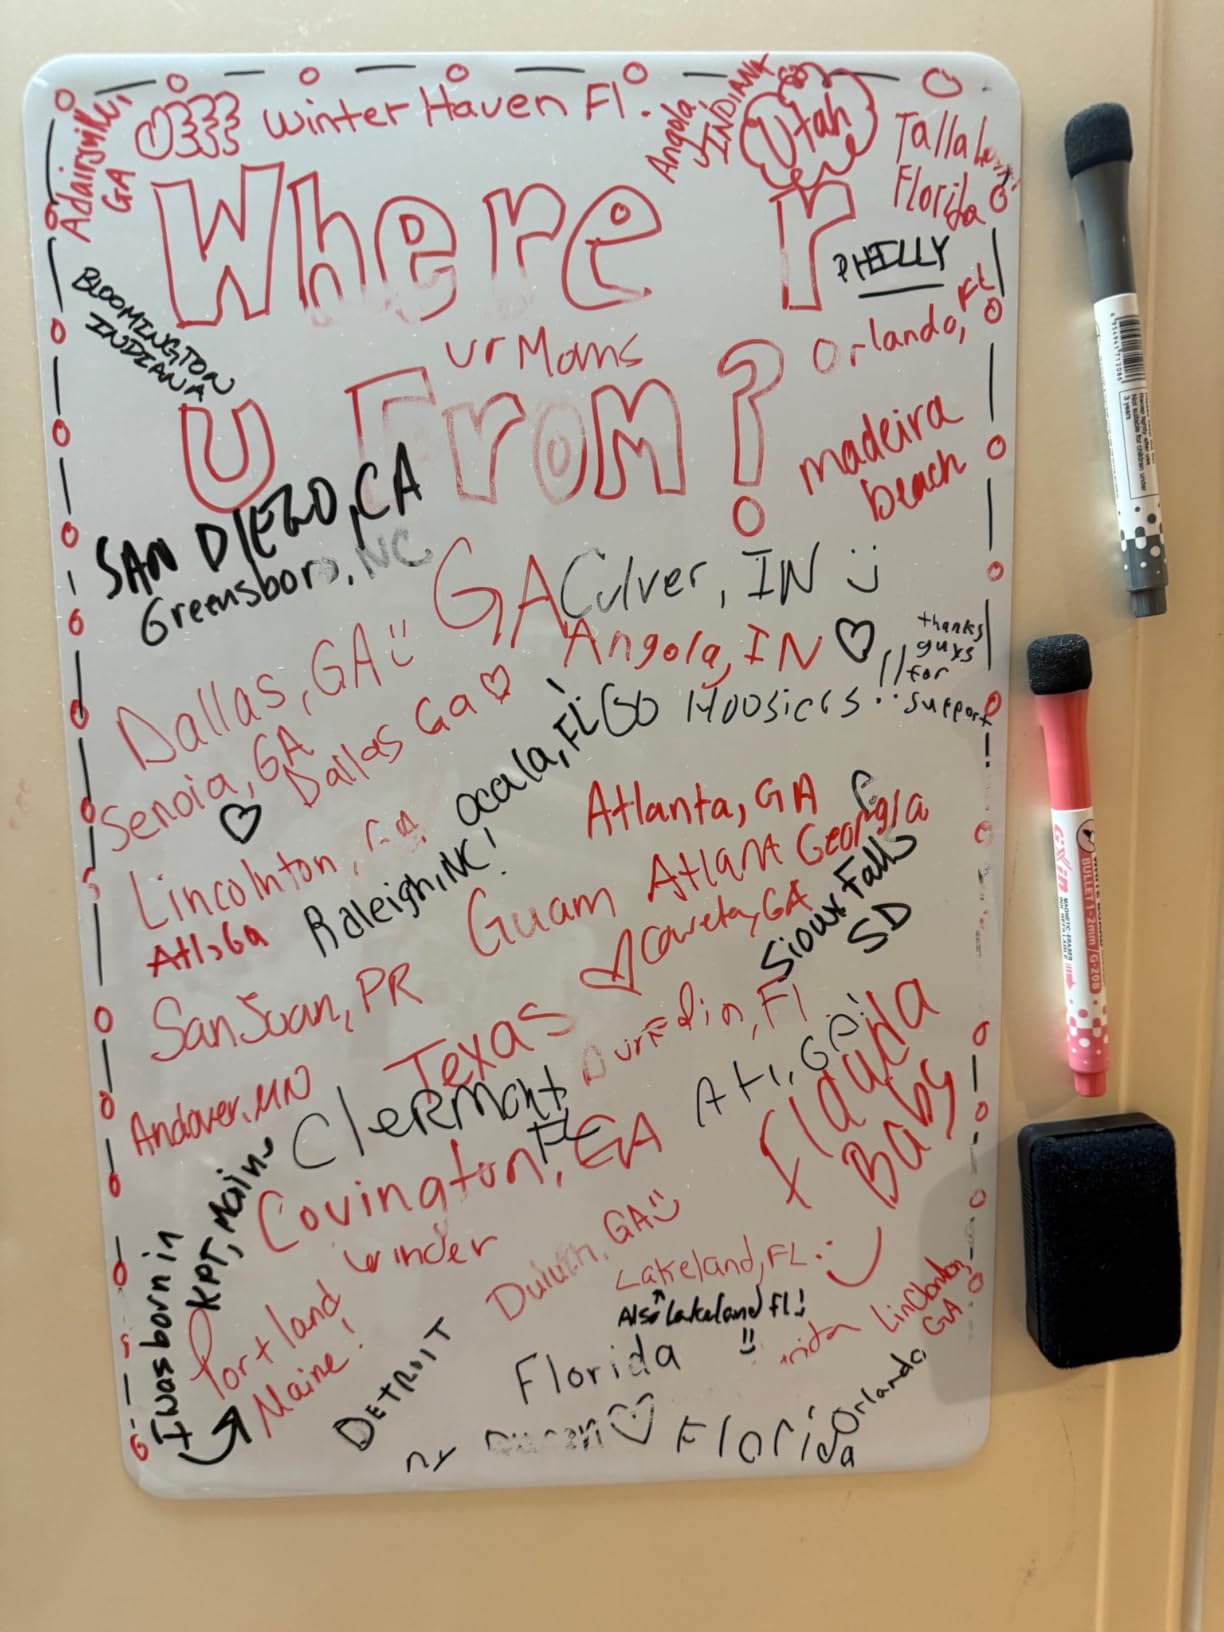 Winter Haven Fl.
Adairsville,
GA
Angola
INDIANA
Utah
Talla
Florida
Where r
PHILLY
BLOOMINGTON
INDIANA
ur Moms
Orlando, FL
U From?
madeira
beach
SAN DIEGO, CA
Greensboro, NC
GA
Culver, IN
Angola, IN
Go Hoosiers!!
thanks
guys
for
support
Dallas, GA
Senoia, GA
Dallas Ga
Ocala, FL!
Atlanta, GA
Lincolnton, GA
Raleigh, NC!
Atlanta Georgia
Atl, Ga
Guam
Coweta, GA
Sioux Falls
SD
San Juan, PR
Texas
Fl
Atl, GA
Andover, MN
Clermont
FL
Covington, GA
Baby
I was born in
KPT, Maine
Winder
Duluth, GA
Lakeland, FL
Also Lakeland Fl!
Portland
Maine!
GA
DETROIT
Florida
ny
Florida
Orlando
BULLET 1-2mm/G-208
Not suitable for children under
3 years